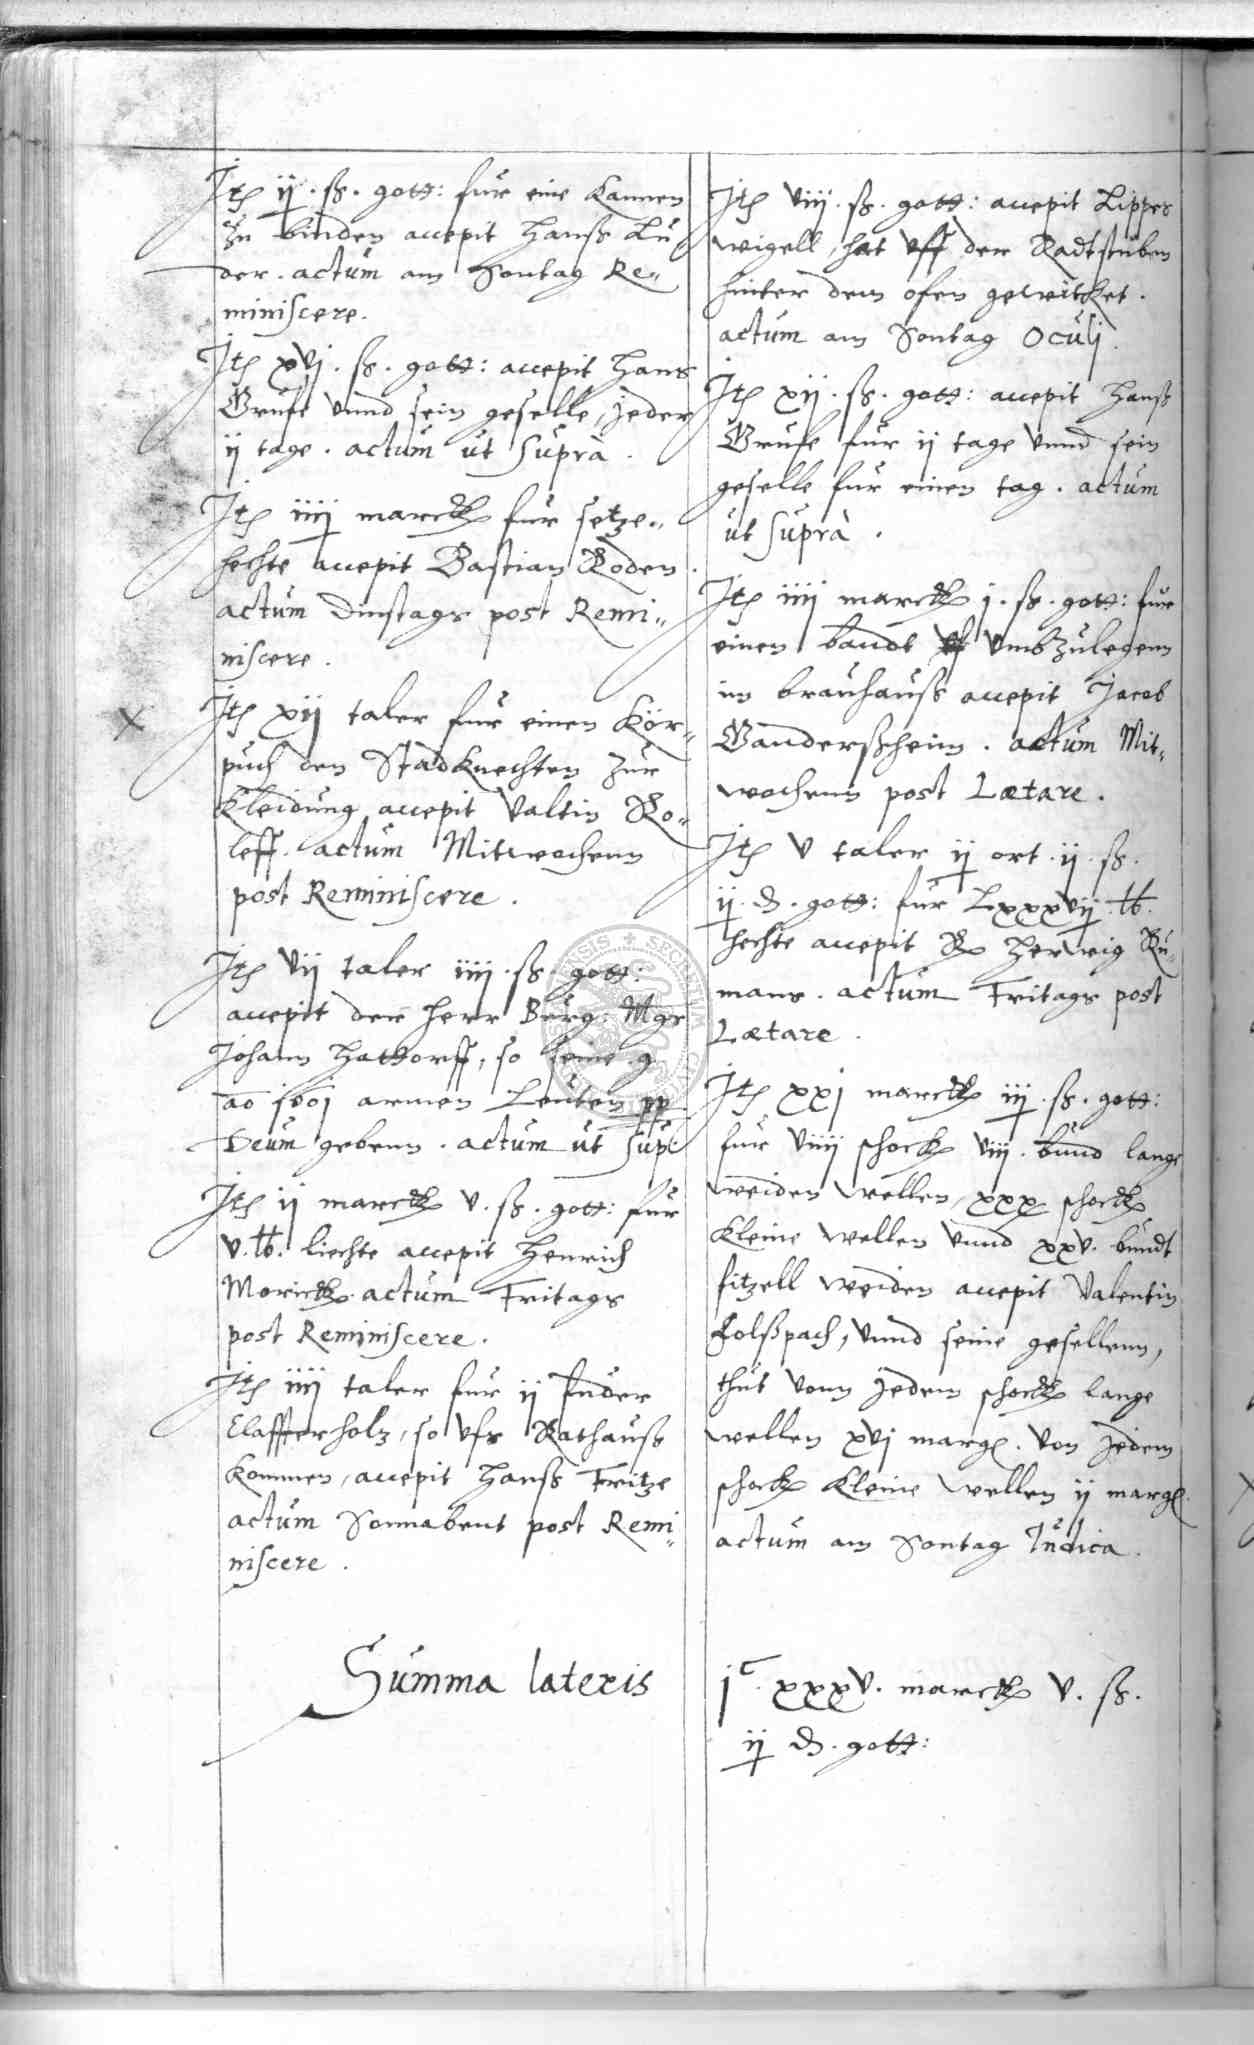 Jt ij. ß. gott: fur eine Kannen
zu binden accepit Hanß Lu
der. actum am Sontag Re=
miniscere.
Jt xvj. ß. gott: accepit Hans
Grufe vnnd sein geselle, jeder
ij tage. actum ut suprà.
Jt iiij marck fur setze=
hechte accepit Bastian Roden.
actum Dinstags post Remi=
niscere.
X
Jt xij taler fur einen Kör=
puch den Stadknechten zur
Kleidung accepit Valtin Ro=
leff. actum Mitwochenn
post Reminiscere.
Jt vij taler iiij. ß. gott:
accepit der herr Burg: Mgr
Johann Hattorff, so seine g
armen Leuten pp
Deum gebenn. actum ut sup:
Jt ij marck v. ß. gott: fur
v. lb. liechte accepit Henrich
Morick. actum Fritags
post Reminiscere.
Jt iiij taler fur ij fuder
Claffterholz, so vfs Rathauß
kommen, accepit Hanß Fritze
actum Sonnabent post Remi=
niscere.
Summa lateris
Jt viij. ß. gott: accepit Lippes
wigell, hat vff der Radtstuben
hinter dem ofen gewitket.
actum am Sontag Oculj.
Jt xij. ß. gott: accepit Hanß
Grufe fur ij tage vnnd sein
geselle fur einen tag. actum
ut suprà.
Jt iiij marck j. ß. gott: fur
einen bandt vmbzulegenn
im brauhauß accepit Jacob
Ganderßheim. actum Mit=
wochenn post Lætare.
Jt v taler ij ort. ij. ß.
ij. d. gott: fur Lxxxvij. lb.
hechte accepit Herwig Ru=
mans. actum Fritags post
Lætare.
Jt xxj marck iij. ß. gott:
fur viiij schock viij. bund lange
weiden wellen, xxx schock
kleine wellen vnnd xxv. bundt
fitzell weiden accepit Valentin
Folßpach, vnnd seine gesellenn,
thut vonn jedem schock lange
wellen xvj marg. von jedem
schock kleine wellen ij marg.
actum am Sontag Judica.
jc. xxxv. marck v. ß.
ij d. gott: